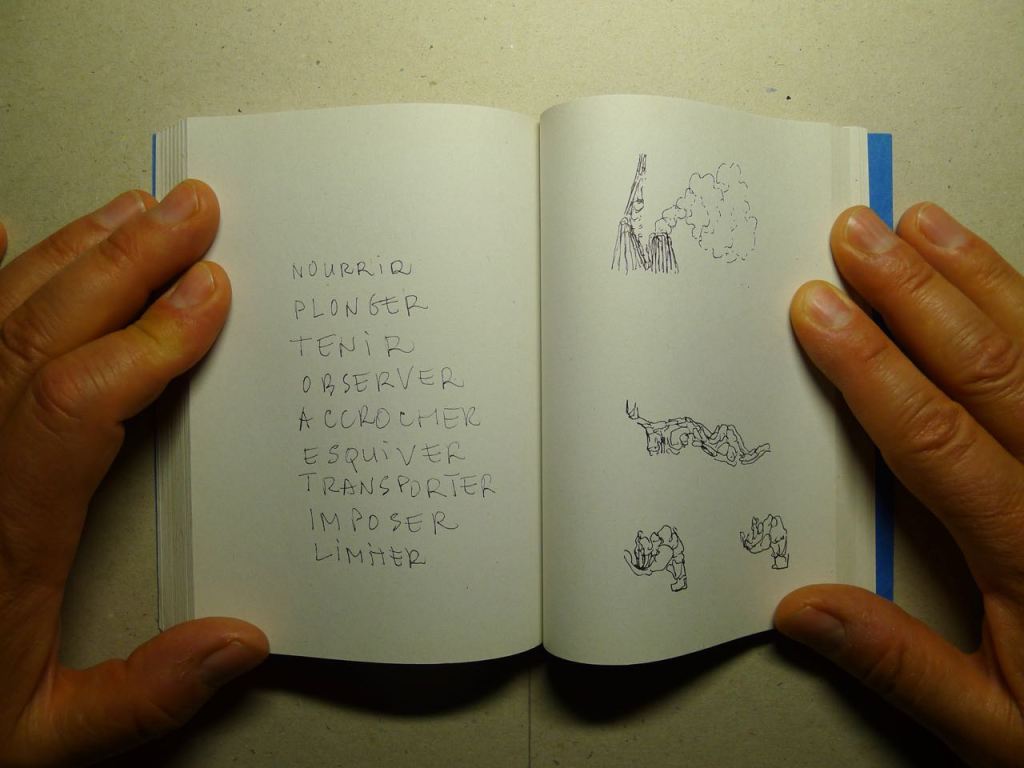 NOURRIR
PLONGER
TENIR
OBSERVER
ACCROCHER
ESQUIVER
TRANSPORTER
IMPOSER
LIMITER